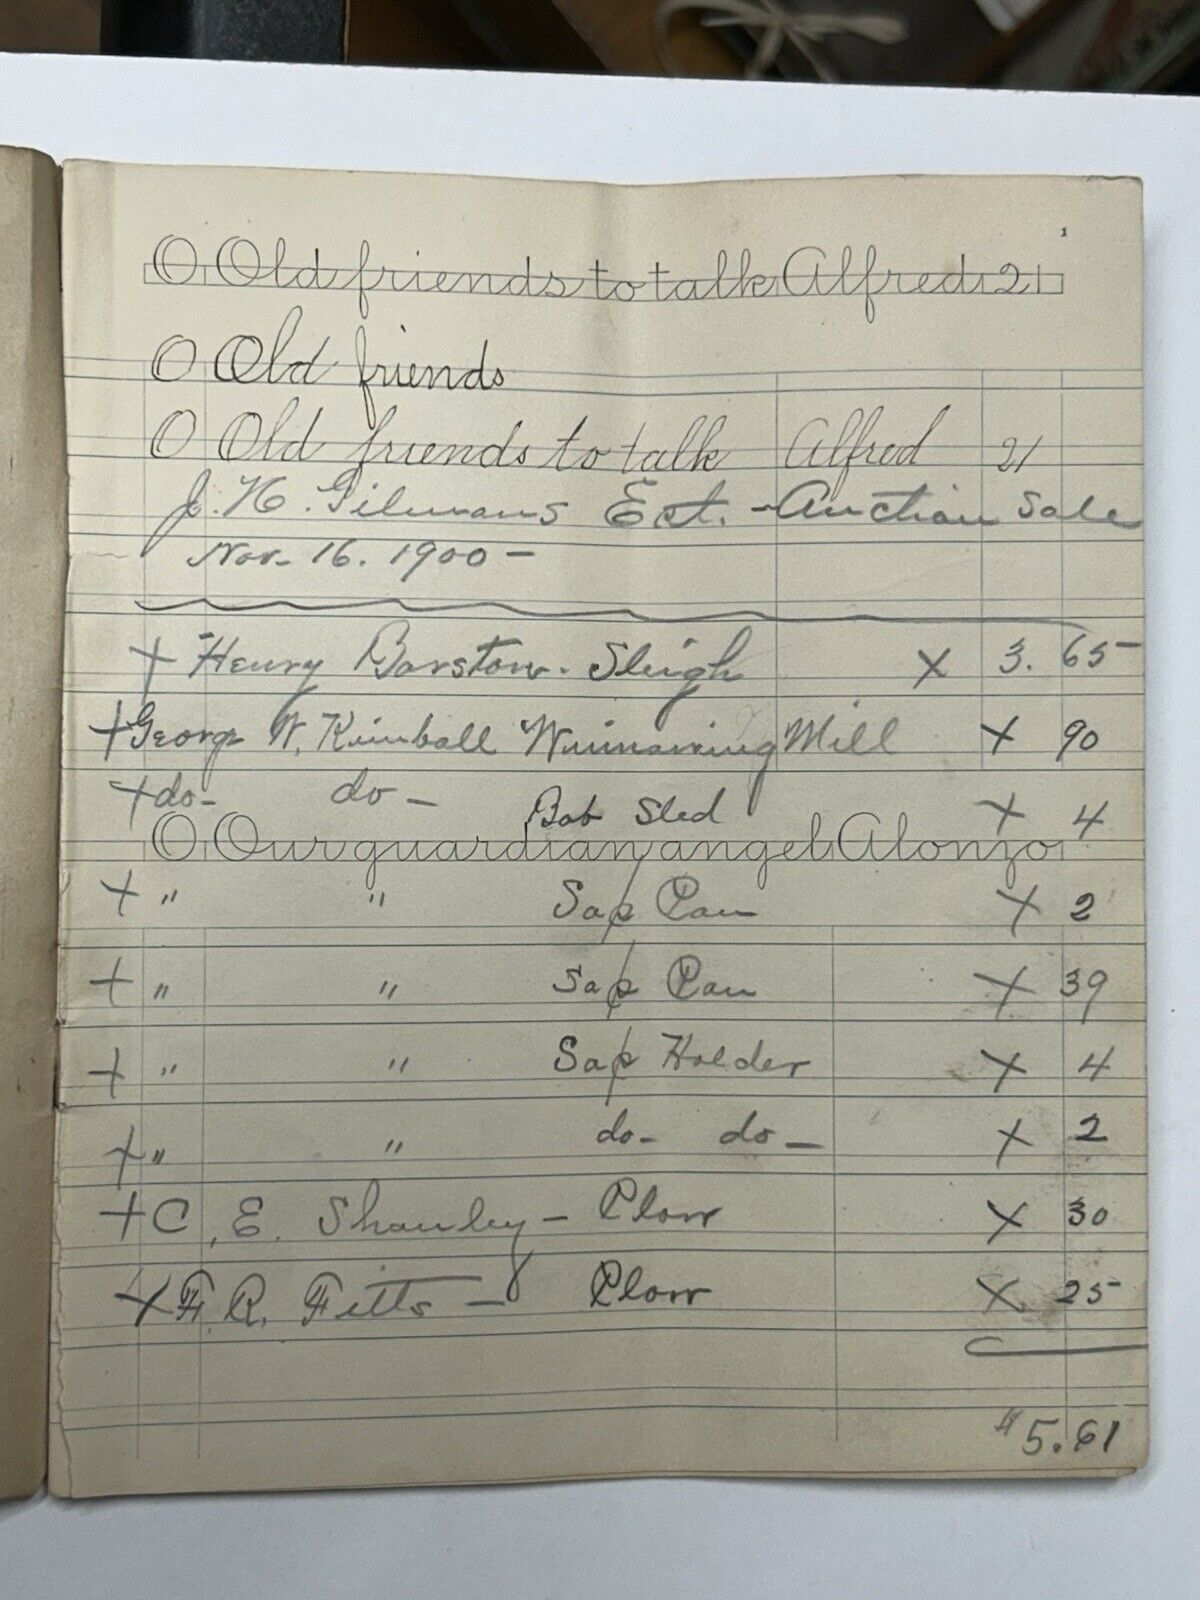 1
O Old friends to talk Alfred 21
O Old friends
O Old friends to talk Alfred 21
J. H. Gilmans Est. - Auction Sale
Nov. 16. 1900 -
+ Henry Barstow. Sleigh x 3. 65
+ George W. Kimball Winnowing Mill x 90
+ do - do - Bob Sled x 4
O Our guardian angel Alonzo
+ " " Sap Pan x 2
+ " " Sap Pan x 39
+ " " Sap Holder x 4
+ " " do - do - x 2
+ C. E. Shanley - Plow x 30
x F. R. Fitts - Plow x 25
$5.61